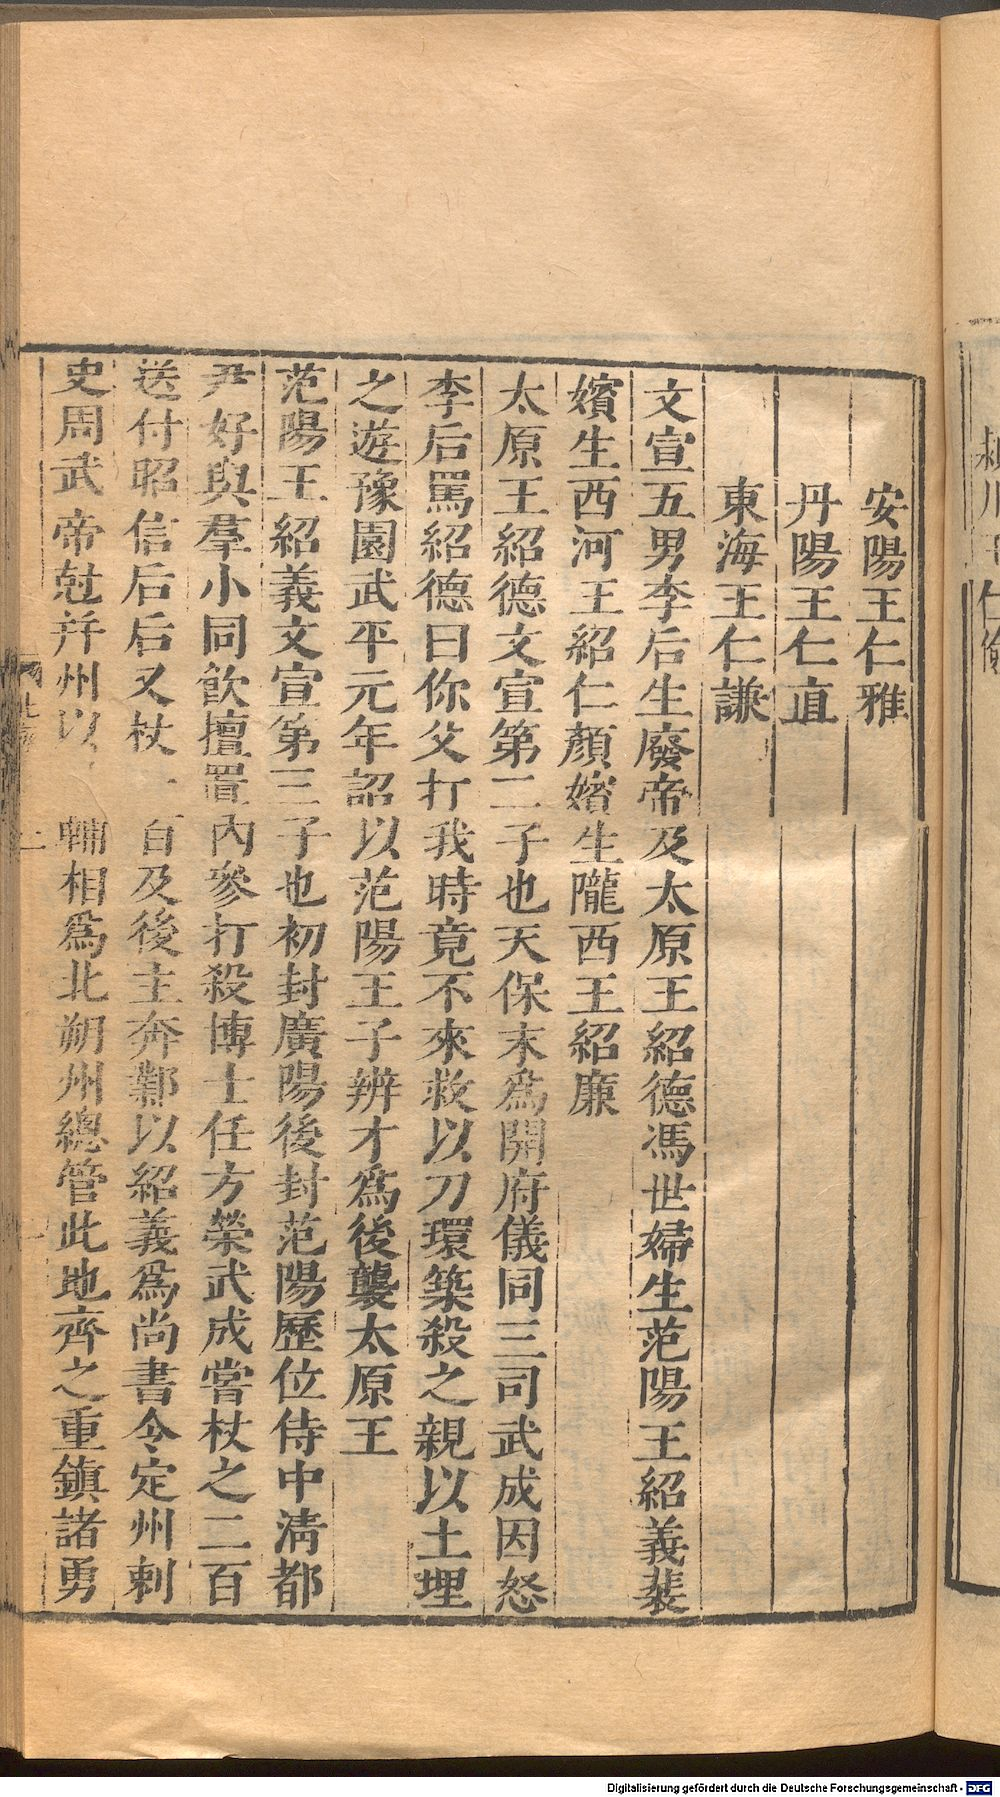 安陽王仁雅
丹陽王仁直
東海王仁謙
文宣五男李后生廢帝及太原王紹德馮世婦生范陽王紹義裴
嬪生西河王紹仁顏嬪生隴西王紹廉
太原王紹德文宣第二子也天保末爲開府儀同三司武成因怒
李后罵紹德曰你父打我時竟不來救以刀環築殺之親以土埋
之遊豫園武平元年詔以范陽王子辨才爲後襲太原王
范陽王紹義文宣第三子也初封廣陽後封范陽歷位侍中淸都
尹好與羣小同飮擅置內參打殺博士任方榮武成嘗杖之二百
送付昭信后后又杖一百及後主奔鄴以紹義爲尚書令定州刺
史周武帝尅幷州以輔相爲北朔州總管此地齊之重鎭諸勇
仁儉
Digitalisierung gefördert durch die Deutsche Forschungsgemeinschaft - DFG